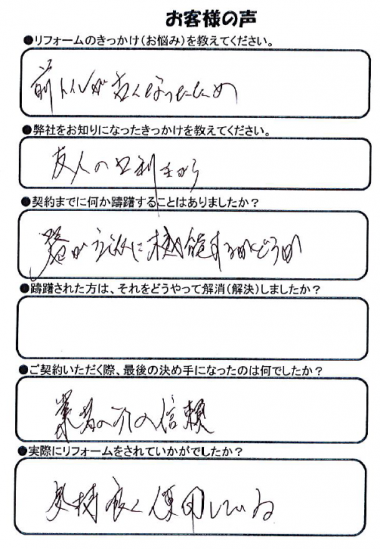 お客様の声
●リフォームのきっかけ(お悩み)を教えてください。
前トイレが古くなったため
●弊社をお知りになったきっかけを教えてください。
友人の
●契約までに何か躊躇することはありましたか?
に機能するかどうか
●躊躇された方は、それをどうやって解消(解決)しましたか?
●ご契約いただく際、最後の決め手になったのは何でしたか?
業者への信頼
●実際にリフォームをされていかがでしたか?
気持良く使用している